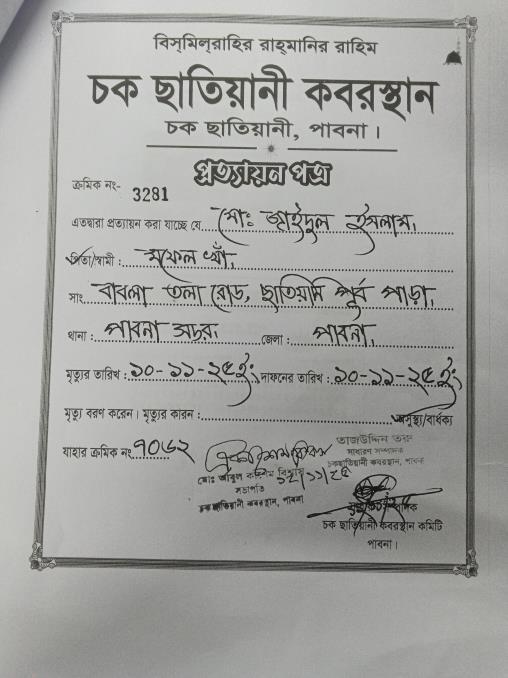 বিস্‌মিল্‌রাহির রাহ্‌মানির রাহিম
চক ছাতিয়ানী কবরস্থান
চক ছাতিয়ানী, পাবনা।
প্রত্যায়ন পত্র
ক্রমিক নং- 3281
এতদ্বারা প্রত্যায়ন করা যাচ্ছে যে মোঃ জাইদুল ইসলাম,
পিতা/স্বামী : মফেল খাঁ,
সাং বাবলা তলা রোড, ছাতিয়ানি পূর্ব পাড়া,
থানা : পাবনা সদর, জেলা : পাবনা,
মৃত্যুর তারিখ : ১০-১১-২৫ইং দাফনের তারিখ : ১০-১১-২৫ইং
মৃত্যু বরণ করেন। মৃত্যুর কারন : অসুস্থ্য/বার্ধক্য
যাহার ক্রমিক নং ৭০৬২
তাজউদ্দিন
সাধারণ সম্পাদক
চকছাতিয়ানী কবরস্থান, পাবনা
মোঃ আবুল কাশিম বিশ্বাস
সভাপতি
চক ছাতিয়ানী কবরস্থান, পাবনা
১২/১১/২৫
চক ছাতিয়ানী কবরস্থান কমিটি
পাবনা।